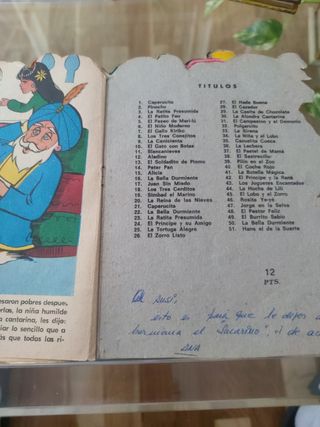 TITULOS
1. Caperucita
2. Pinocho
3. La Ratita Presumida
4. El Patito Feo
5. El Paseo de Mari-lú
6. El Niño Moderno
7. El Gallo Kiriko
8. Los Tres Conejitos
9. La Cenicienta
10. El Gato con Botas
11. Blancanieves
12. Aladino
13. El Soldadito de Plomo
14. Peter Pan
15. Alicia
16. La Bella Durmiente
17. Juan Sin Miedo
18. Los Tres Cerditos
19. Simbad el Marino
20. La Reina de las Nieves
21. Caperucita
22. La Bella Durmiente
23. La Ratita Presumida
24. El Príncipe y su Amigo
25. La Tortuga Alegre
26. El Zorro Listo
27. El Hada Buena
28. El Cazador
29. La Casita de Chocolate
30. La Alondra Cantarina
31. El Campesino y el Demonio
32. Pulgarcito
33. La Sirena
34. La Niña y el Lobo
35. Osito
36. La Lechera
37. El Pastel de Mamá
38. El Sastrecillo
39. Pilín en el Zoo
40. El Coche Rojo
41. La Botella Mágica
42. El Príncipe y la Rana
43. Los Juguetes Encantados
44. La Hucha de Lili
45. El Lobo y el Zorro
46. Rosita
47. Jorge en la Selva
48. El Pastor Feliz
49. El Burrito Sabio
50. La Bella Durmiente
51. Hans el de la Suerte
12
PTS.
Susi,
esto es para que le dejes a
hermana el "Sacarino", de
ANA
esaron pobres despue,
erlas, la niña humilde
cantarina, les dijo:
iar lo sencillo que a
ás que todas las ri-